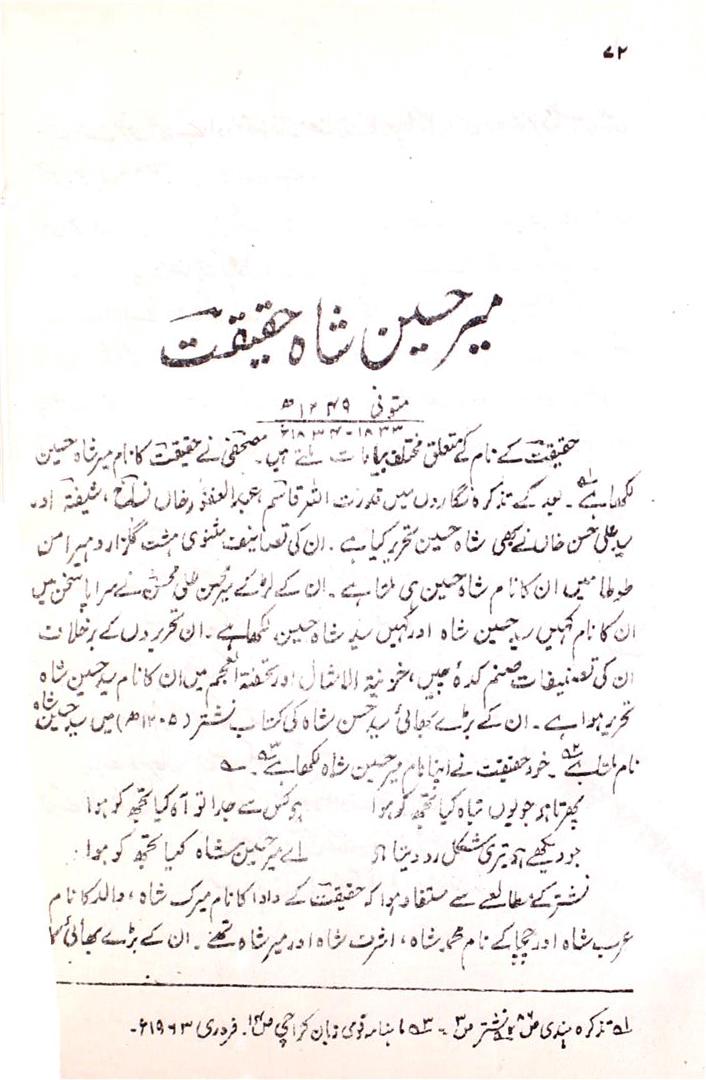 ۷۲
میر حسین شاہ حقیقت
متوفی ۱۲۴۹ھ
۱۸۳۳-۱۸۳۴ء
حقیقت کے نام کے متعلق مختلف بیانات ملتے ہیں۔ مصحفی نے حقیقت کا نام میر شاہ حسین
لکھا ہے۱؎۔ بعد کے تذکرہ نگاروں میں قدرت اللہ قاسم، عبدالغفور خاں نساخ، شیفتہ اور
سید علی حسن خاں نے بھی شاہ حسین تحریر کیا ہے۔ ان کی تصانیف مثنوی ہشت گلزار و ہیرامن
طوطا میں ان کا نام شاہ حسین ہی ملتا ہے۔ ان کے لڑکے میر محسن علی محسن نے سراپا سخن میں
ان کا نام کہیں سید حسین شاہ اور کہیں سید شاہ حسین لکھا ہے۔ ان تحریروں کے برخلاف
ان کی تصنیفات صنم کدۂ چیں، خزینۃ الامثال اور تحفۃ العجم میں ان کا نام سید حسین شاہ
تحریر ہوا ہے۔ ان کے بڑے بھائی سید حسن شاہ کی کتاب نشتر (۱۲۰۵ھ) میں سید حسین شاہ
نام ملتا ہے۲؎۔ خود حقیقت نے اپنا نام میر حسین شاہ لکھا ہے۳؎۔ ؎
پھرتا ہو جو یوں تباہ کیا تجھ کو ہوا ہو کس سے جدا تو آہ کیا تجھ کو ہوا
جو دیکھے ہے تیری شکل رو دیتا ہے اے میر حسین شاہ کیا تجھ کو ہوا
نشتر کے مطالعے سے مستفاد ہوا کہ حقیقت کے دادا کا نام میرک شاہ، والد کا نام
عرب شاہ اور چچا کے نام محمد شاہ، اشرف شاہ اور میر شاہ تھے۔ ان کے بڑے بھائی کا
۱؎ تذکرہ ہندی ص ۸۶ ۲؎ نشتر ص ۳۔ ۳؎ ماہنامہ قومی زبان کراچی ص ۱۴۔ فروری ۱۹۶۳ء۔